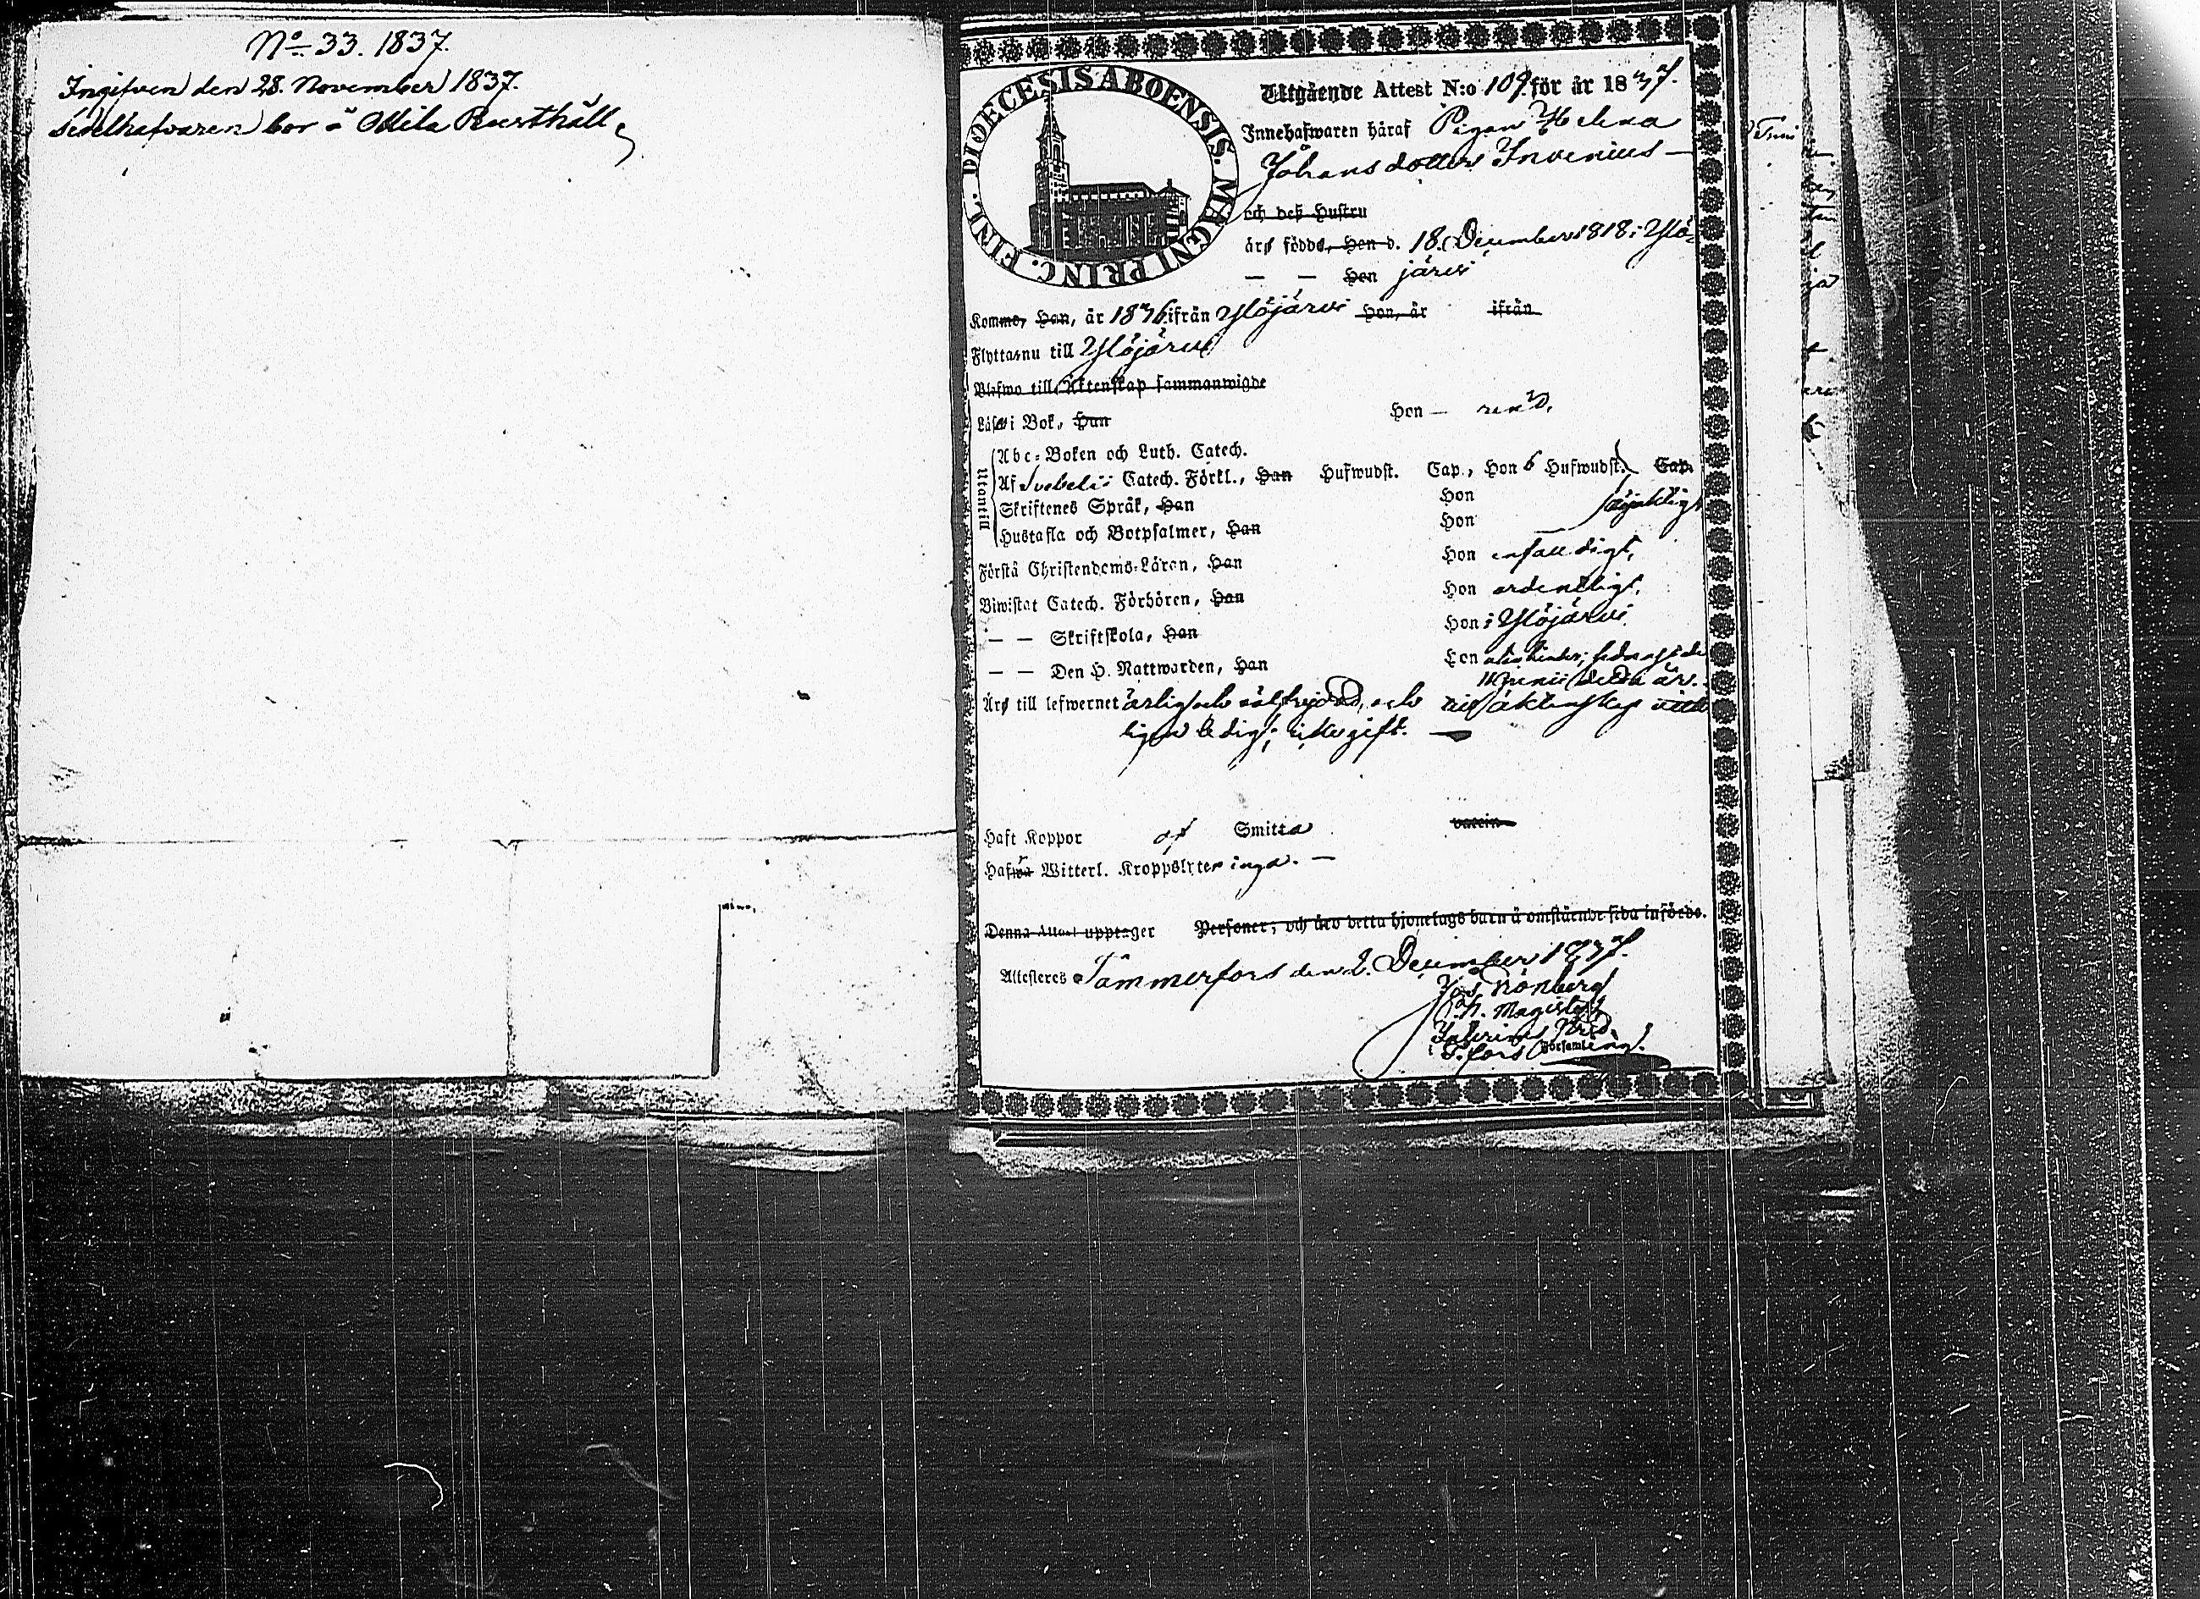 No 33. 1837.
Ingifven den 28. November 1837.
Sedelhafvaren bor å Mila Rusthåll
DIOECESIS ABOENSIS. MAGNI PRINC. FINL.
Utgående Attest N:o 109. för år 1837.
Innehafwaren häraf Pigan Helena
Johansdotter Invenius —
och deß Hustru
äro födde, Hen d. 18. December 1818 i Ylö-
— — Hen järvi
Komme, Han, år 1836 ifrån Ylöjärvi Hon, år ifrån
Flyttar nu till Ylöjärvi
Blefwo till Äktenskap sammanwigde
Läser i Bok, Han Hon — rent.
Utantill
Abc-Boken och Luth. Catech.
Af Svebelii Catech. Förkl., Han Hufwudst. Cap., Hon 6 Hufwudst. Cap.
Skriftenes Språk, Han Hon
Hustafla och Botpsalmer, Han Hon
Förstå Christendoms-Läran, Han Hon enfaldigt,
Biwistat Catech. Förhören, Han Hon ordentligt.
— — Skriftskola, Han Hon i Ylöjärvi.
— — Den H. Nattwarden, Han Hon
Juni detta år.
Äro till lefwernet ärlig och och äktenskap
ledig; gift. —
Haft Koppor af Smitta vaccin
Hafwa Witterl. Kroppslyten inga. —
Denna Attest upptager Personer; och äro detta hjonelags barn å omstående sida införde.
Attesteres Tammerfors den 2. December 1837.
Grönberg
Magister
i T:fors Församling.